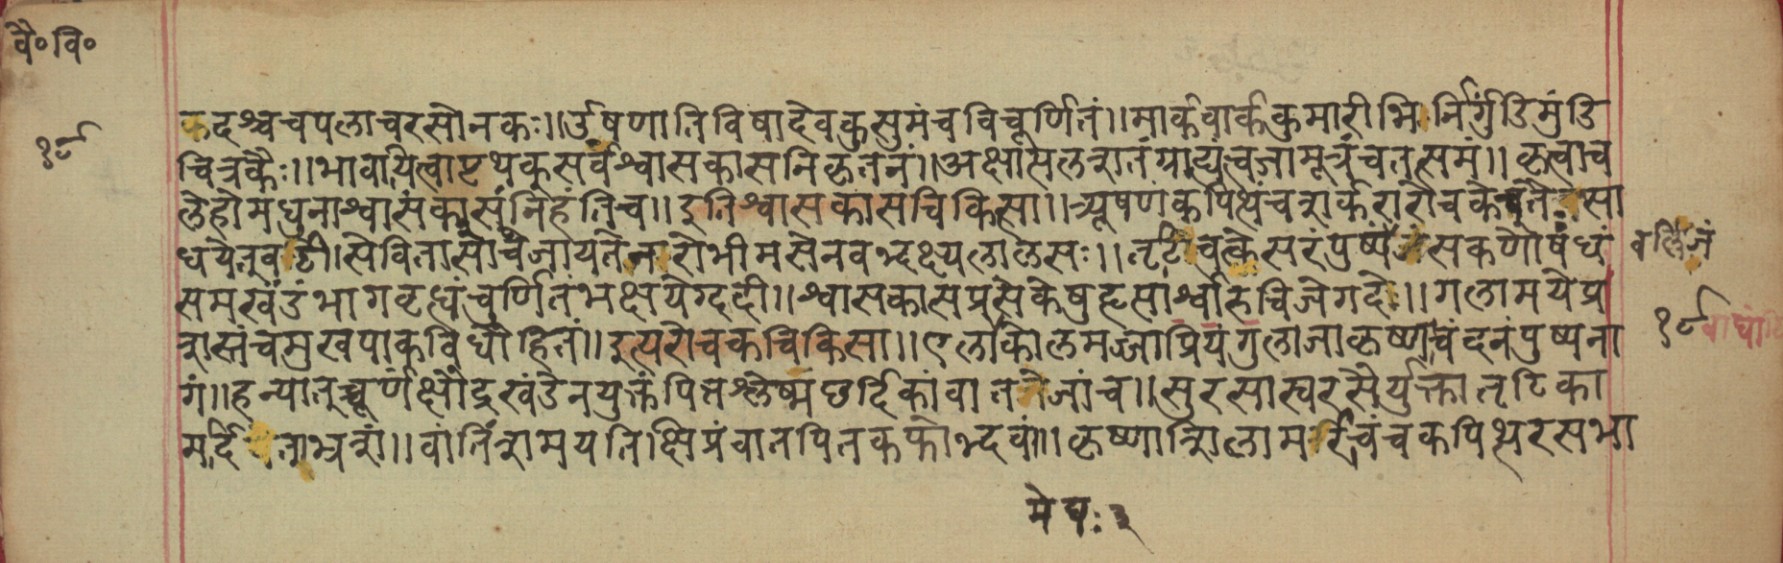 वै॰वि॰
१८
कदश्वचपलाचरसोनकः॥र्उषणातिविषादेवकुसुमंचविचूर्णितं॥मार्कवार्ककुमारीभिर्निर्गुंडिमुंडि
चित्रकैः॥भावायित्वापृथक्सर्वश्वासकासनिकृतनं॥अक्षांसलत्रातंग्राह्यंत्वजामूत्रंचतत्समं॥कृत्वाच
लेहोमधुनाश्वासंकासंनिहंतिच॥इतिश्वासकासचिकित्सा॥त्र्यूषणंकपित्थंचशर्करारोचके
धयेतुवटी।सेवितासाचेजायतेनारोभीमसेनवभ्दक्षलालसः॥तृटित्वक्केसरंपुष्पं सकणौषधं
वर्लिजं
समखंडंभागवृध्यंचूर्णितंभक्षयेग्ददी॥श्वासकासप्रसेकेषुहृत्पार्श्वारुचिजेगदे॥गलामयेप्र
शस्तंचमुखपाकविधौहितं॥इत्यरोचकचिकित्सा॥एलाकोलमज्जाप्रियंगुलाजाकृष्णाचंदनंपुष्पना
१८
गं॥हन्यातुच्चूर्णंक्षौद्रखंडेनयुक्तंपित्तश्लेष्मछर्दिकांवातजांच॥सुरसास्वरसैर्युक्तातृटिका
मर्दि भृशं॥वांतिंशमयतिक्षिप्रंवातपितकफोभ्दवां॥कृष्णाशिलामरिचंचकपित्थरसभा
मेघः३